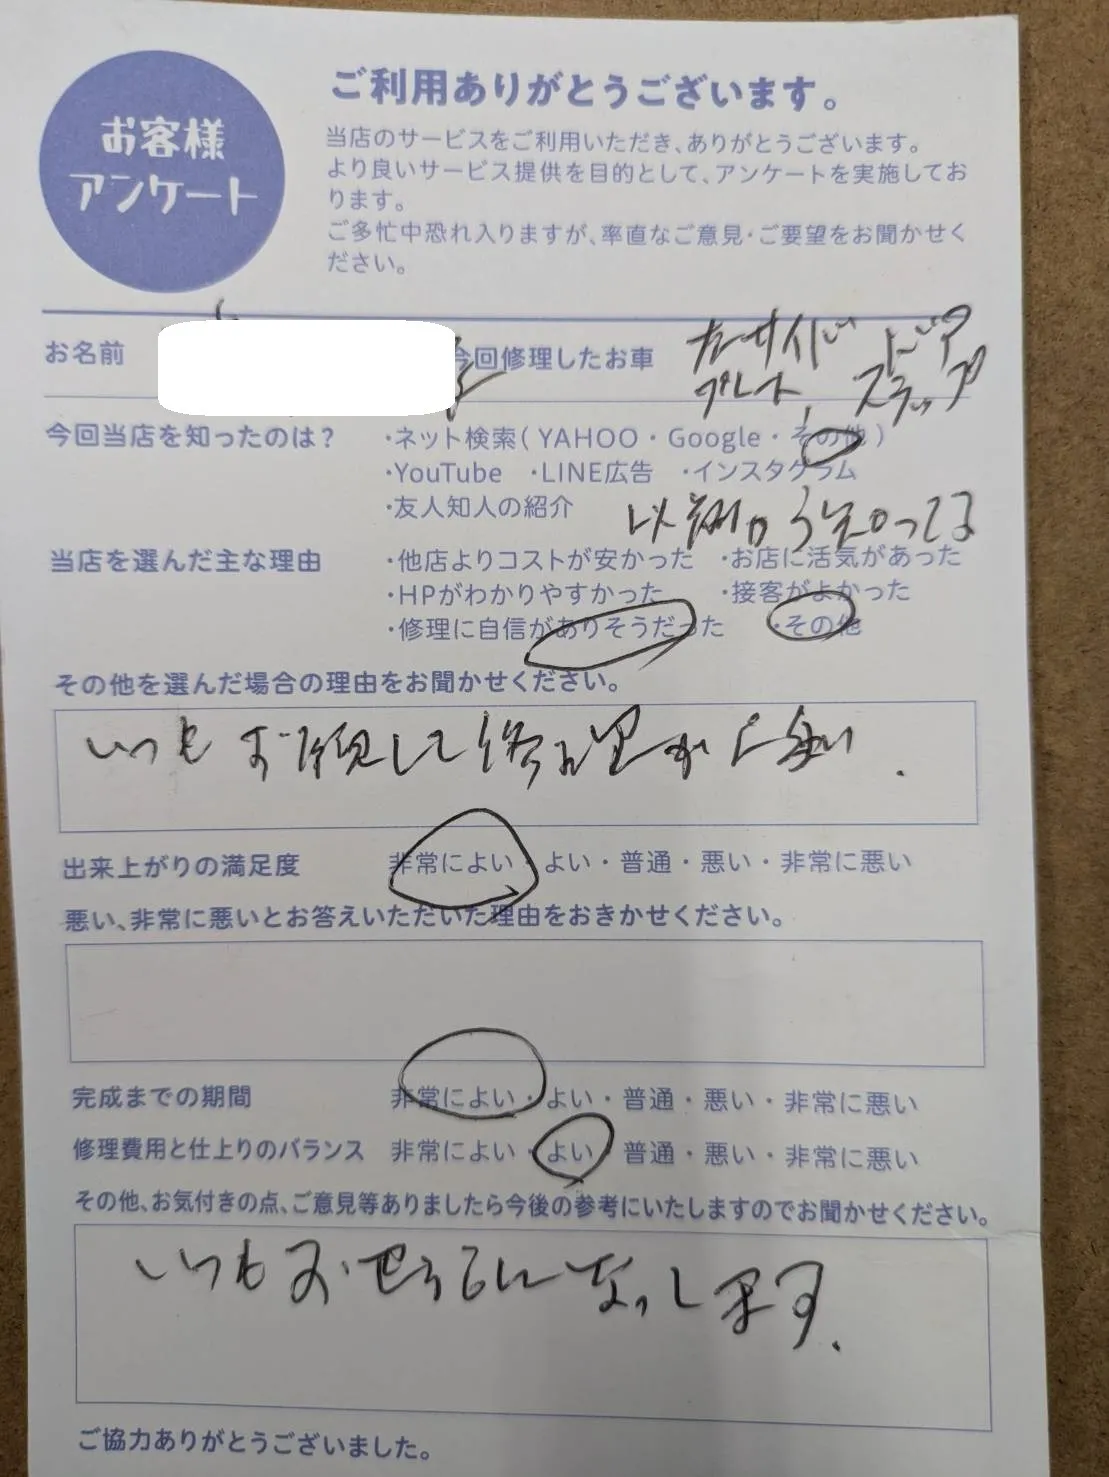 お客様
アンケート
ご利用ありがとうございます。
当店のサービスをご利用いただき、ありがとうございます。
より良いサービス提供を目的として、アンケートを実施してお
ります。
ご多忙中恐れ入りますが、率直なご意見・ご要望をお聞かせく
ださい。
お名前
今回修理したお車 カーサイド ドア
プレート, ストラップ
今回当店を知ったのは? ・ネット検索( YAHOO・Google・その他 )
・YouTube ・LINE広告 ・インスタグラム
・友人知人の紹介 以前から知ってる
当店を選んだ主な理由 ・他店よりコストが安かった ・お店に活気があった
・HPがわかりやすかった ・接客がよかった
・修理に自信がありそうだった ・その他
その他を選んだ場合の理由をお聞かせください。
いつもお願いして修理が
出来上がりの満足度 非常によい・よい・普通・悪い・非常に悪い
悪い、非常に悪いとお答えいただいた理由をおきかせください。
完成までの期間 非常によい・よい・普通・悪い・非常に悪い
修理費用と仕上りのバランス 非常によい・よい・普通・悪い・非常に悪い
その他、お気付きの点、ご意見等ありましたら今後の参考にいたしますのでお聞かせください。
いつもおせわになっします.
ご協力ありがとうございました。